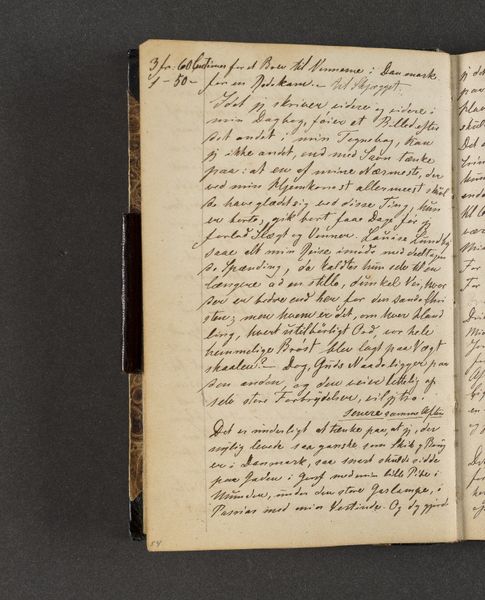 3 fr. 60 Centimer for et Brev til Vennerne i Danmark
1 - 50 - for en Redekam. - til Skjægget.
Idet jeg skriver videre og videre i
min Dagbog, føier et Billed efter
det andet i min Tegnebog, kan
jeg ikke andet, end med Savn tænke
paa: at en af mine Nærmeste, der
ved min Hjemkomst allermeest skul
de have glædet sig ved disse Ting, hun
er borte, gik bort faa Dage før jeg
forlod Slægt og Venner. Louise Lund
saae alt min Reise imøde med deeltagen
de Spænding, da kaldtes hun selv til en
længere ad en stille, dunkel Vei, hvor
der er bedre end her for den sande Chri
sten; men hvem er det, om hver Hand
ling, hvert utilbørligt Ord, vor hele
hemmelige Brøst blev lagt paa Vægt
skaalen? - Dog, Guds Naade ligger paa
den anden, og den veier lettelig op
selv store Forbrydelser, vil jeg tro.
senere samme Aften
Det er underligt at tænke paa, at jeg, der
nylig levede saa ganske som Skik og Brug
er i Danmark, saa snart skulde sidde
paa Gaden i Genf med min lille Pibe i
Munden, under den store Gaslampe, i
Passiar med min Vertinde. Og dog gjord